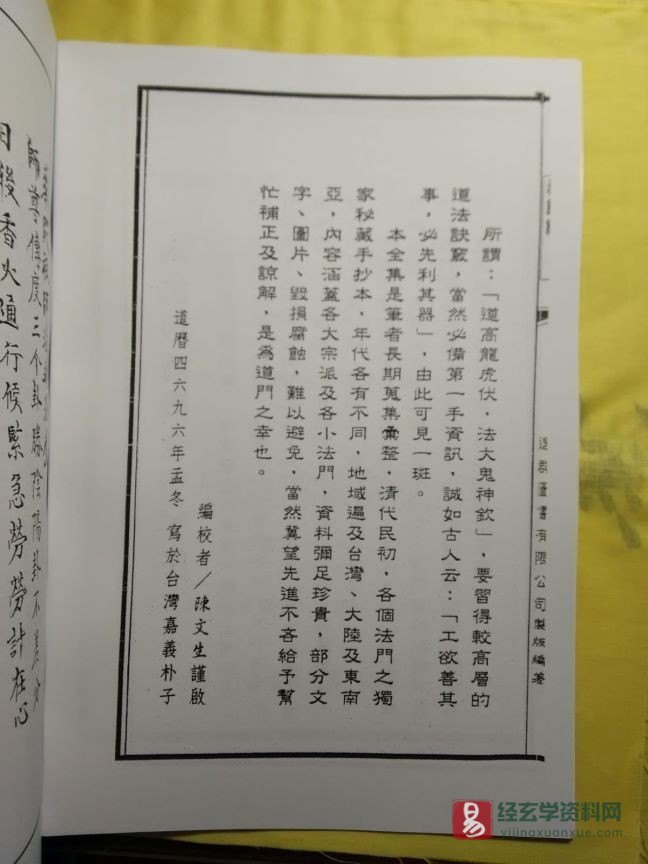 所謂：「道高龍虎伏，法大鬼神欽」，要習得較高層的
道法訣竅，當然必備第一手資訊，誠如古人云：「工欲善其
事，必先利其器」，由此可見一斑。
本全集是筆者長期蒐集彙整，清代民初，各個法門之獨
家秘藏手抄本，年代各有不同，地域遍及台灣、大陸及東南
亞，內容涵蓋各大宗派及各小法門，資料彌足珍貴，部分文
字、圖片、毀損腐蝕，難以避免，當然冀望先進不吝給予幫
忙補正及諒解，是為道門之幸也。
編校者／陳文生謹啟
道曆四六九六年孟冬 寫於台灣嘉義朴子
圖書有限公司製版編著
師尊傳度三个卦 陰陽卦不差分
日後香火通行候緊急勞勞計在心
经玄学资料网
yijingxuanxue.com